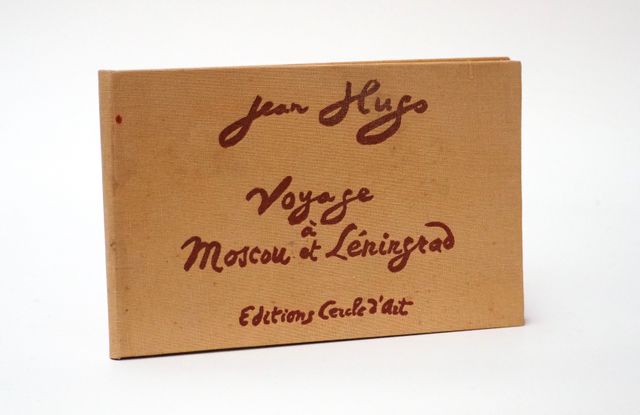 Jean Hugo
Voyage
à
Moscou et Léningrad
Editions Cercle d'Art